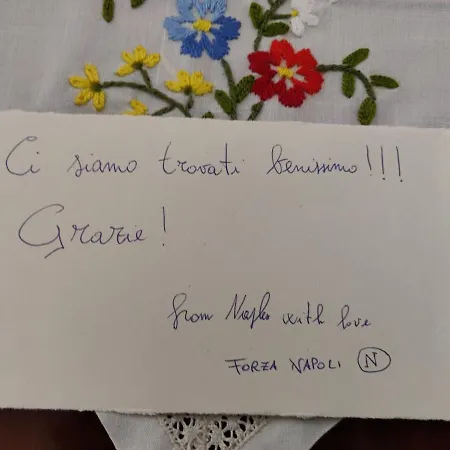 Ci siamo trovati benissimo!!!
Grazie!
from Naples with love
FORZA NAPOLI N